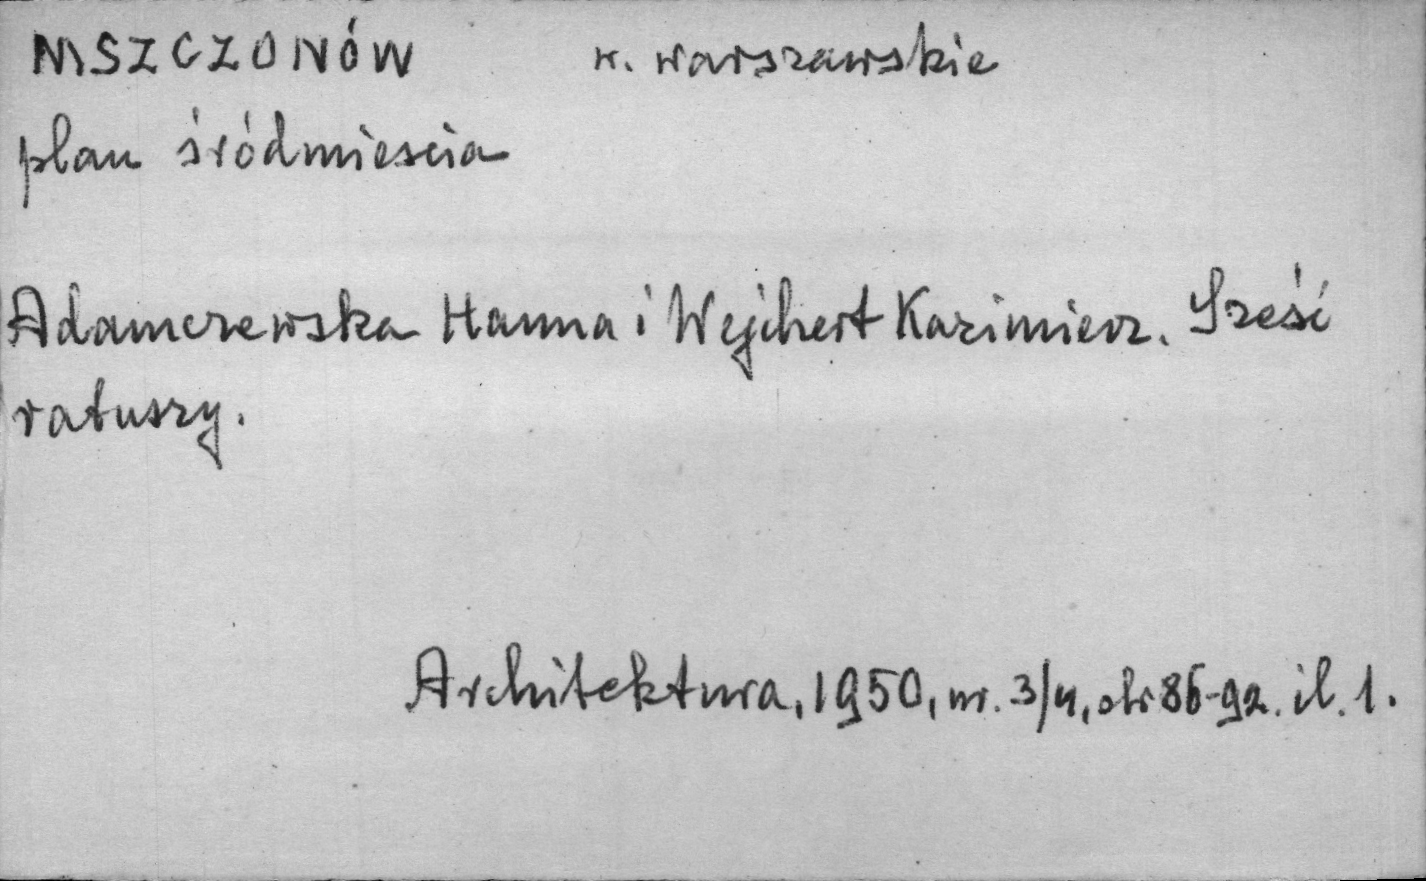 MSZCZONÓW w. warszawskie
plan śródmieścia
Adamczewska Hanna i Wejchert Kazimierz. Sześć
ratuszy.
Architektura, 1950, nr. 3/4, str 86-92. il. 1.